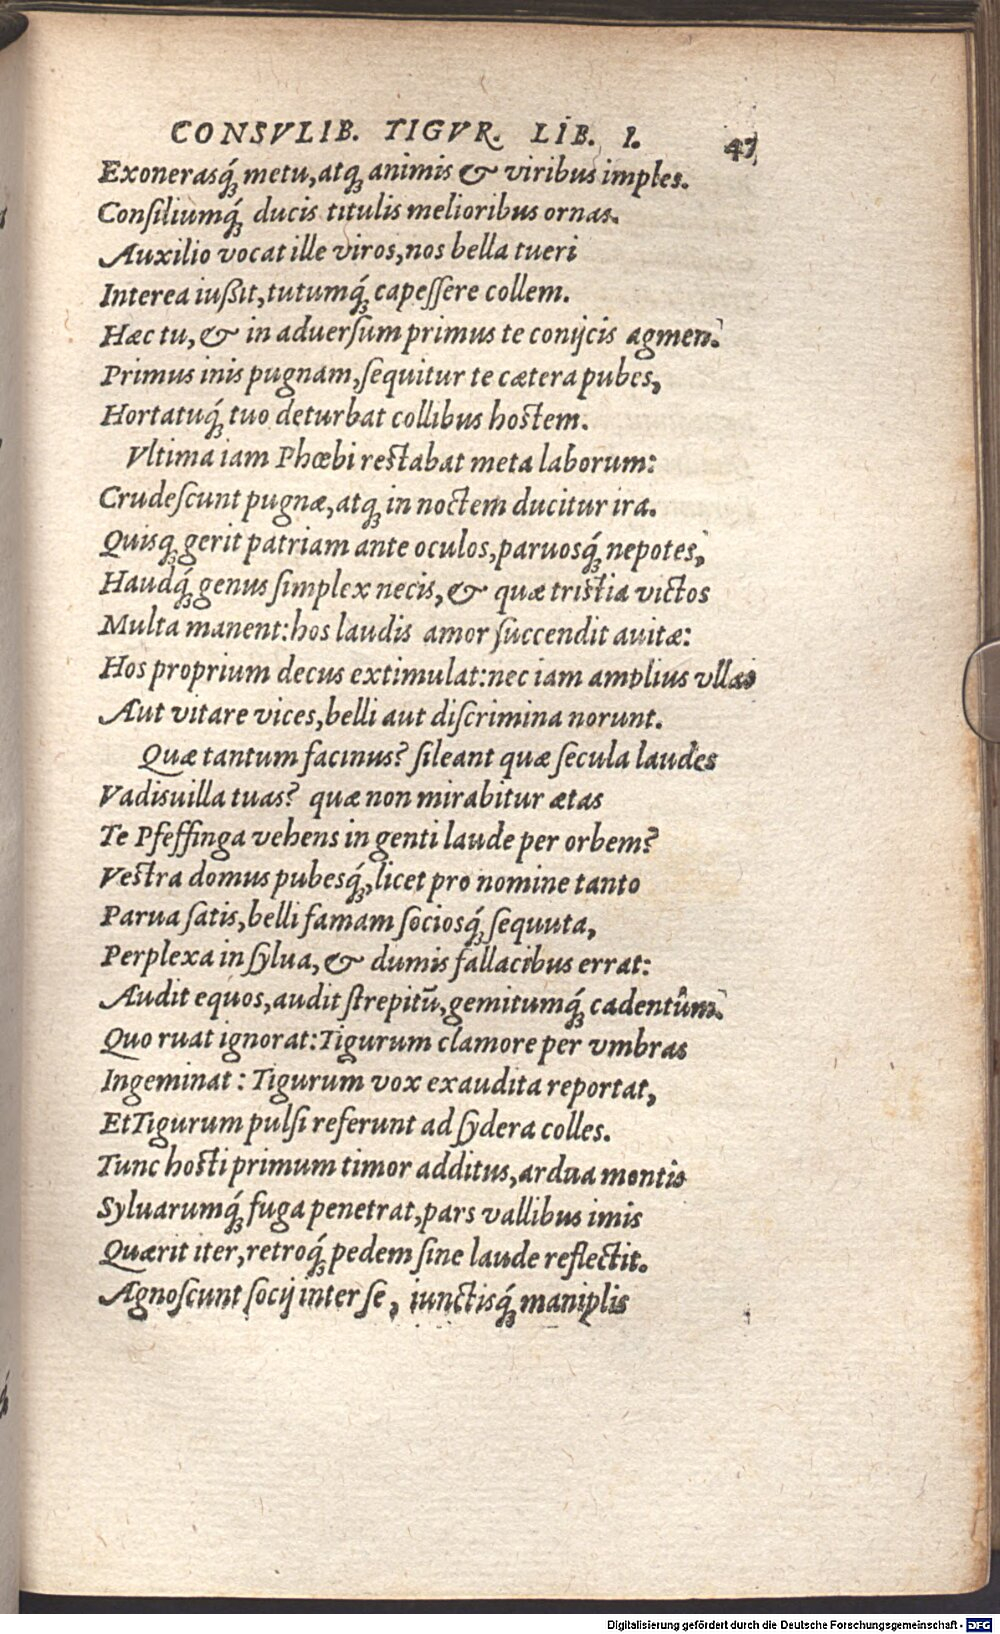 CONSVLIB. TIGVR. LIB. I. 47
Exonerasq́ꝫ metu, atqꝫ animis & viribus imples.
Consiliumq́ꝫ ducis titulis melioribus ornas.
Auxilio vocat ille viros, nos bella tueri
Interea iußit, tutumq́ꝫ capeſſere collem.
Hæc tu, & in aduerſum primus te conijcis agmen.
Primus inis pugnam, ſequitur te cætera pubes,
Hortatuq́ꝫ tuo deturbat collibus hoſtem.
Vltima iam Phœbi reſtabat meta laborum:
Crudeſcunt pugnæ, atqꝫ in noctem ducitur ira.
Quisqꝫ gerit patriam ante oculos, paruosq́ꝫ nepotes,
Haudq́ꝫ genus ſimplex necis, & quæ triſtia victos
Multa manent: hos laudis amor ſuccendit auitæ:
Hos proprium decus extimulat: nec iam amplius vllas
Aut vitare vices, belli aut diſcrimina norunt.
Quæ tantum facinus? ſileant quæ ſecula laudes
Vadisuilla tuas? quæ non mirabitur ætas
Te Pfeffinga vehens in genti laude per orbem?
Veſtra domus pubesq́ꝫ, licet pro nomine tanto
Parua ſatis, belli famam ſociosq́ꝫ ſequuta,
Perplexa in ſylua, & dumis fallacibus errat:
Audit equos, audit ſtrepitū, gemitumq́ꝫ cadentûm.
Quo ruat ignorat: Tigurum clamore per vmbras
Ingeminat: Tigurum vox exaudita reportat,
Et Tigurum pulſi referunt ad ſydera colles.
Tunc hoſti primum timor additus, ardua montis
Syluarumq́ꝫ fuga penetrat, pars vallibus imis
Quærit iter, retroq́ꝫ pedem ſine laude reflectit.
Agnoſcunt ſocij inter ſe, iunctisq́ꝫ maniplis
Digitalisierung gefördert durch die Deutsche Forschungsgemeinschaft - DFG